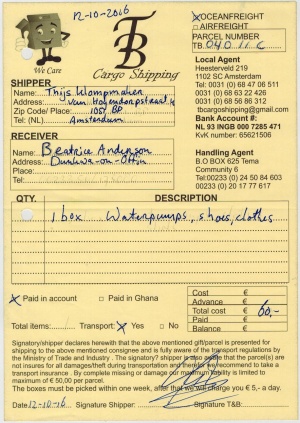 12-10-2016
TB
We Care
Cargo Shipping
☒ OCEANFREIGHT
☐ AIRFREIGHT
PARCEL NUMBER
TB. 040 11 C
Local Agent
Heesterveld 219
1102 SC Amsterdam
Tel: 0031 (0) 68 47 06 511
0031 (0) 68 63 22 426
0031 (0) 68 56 86 312
tbcargoshipping@gmail.com
Bank Account #:
NL 93 INGB 000 7285 471
KvK number: 65621506
SHIPPER
Name: Thijs
Address: van Hogendorpstraat
Zip Code/ Place: 1051 BP
Tel: (NL) Amsterdam
RECEIVER
Name: Beatrice Anderson
Address: Dunkwa-on-Offin
Place:
Tel:
Handling Agent
B.O BOX 625 Tema
Community 6
Tel:00233 (0) 24 50 84 603
00233 (0) 20 17 77 617
QTY. DESCRIPTION
1 box Waterpumps, shoes, clothes
☒ Paid in account ☐ Paid in Ghana
Total items: Transport: ☒ Yes ☐ No
Cost €
Advance €
Total cost € 60,-
Paid €
Balance €
Signatory/shipper declares herewith that the above mentioned gift/parcel is presented for
shipping to the above mentioned consignee and is fully aware of the transport regulations by
the Ministry of Trade and Industry . The signatory? shipper is also aware that the parcel(s) are
not insures for all damages/theft during transportation and therefore we recommend to take a
transport insurance . By complete missing or damage our maximum liability is limited to
maximum of € 50,00 per parcel.
The boxes must be picked within one week, after that we will charge you € 5,- a day.
Date: 12-10-16 Signature Shipper: Signature T&B: